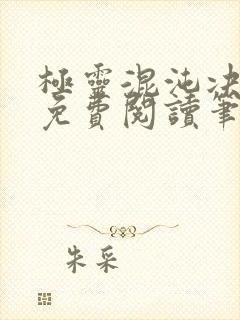 極靈混沌決
免費閱讀筆
朱采